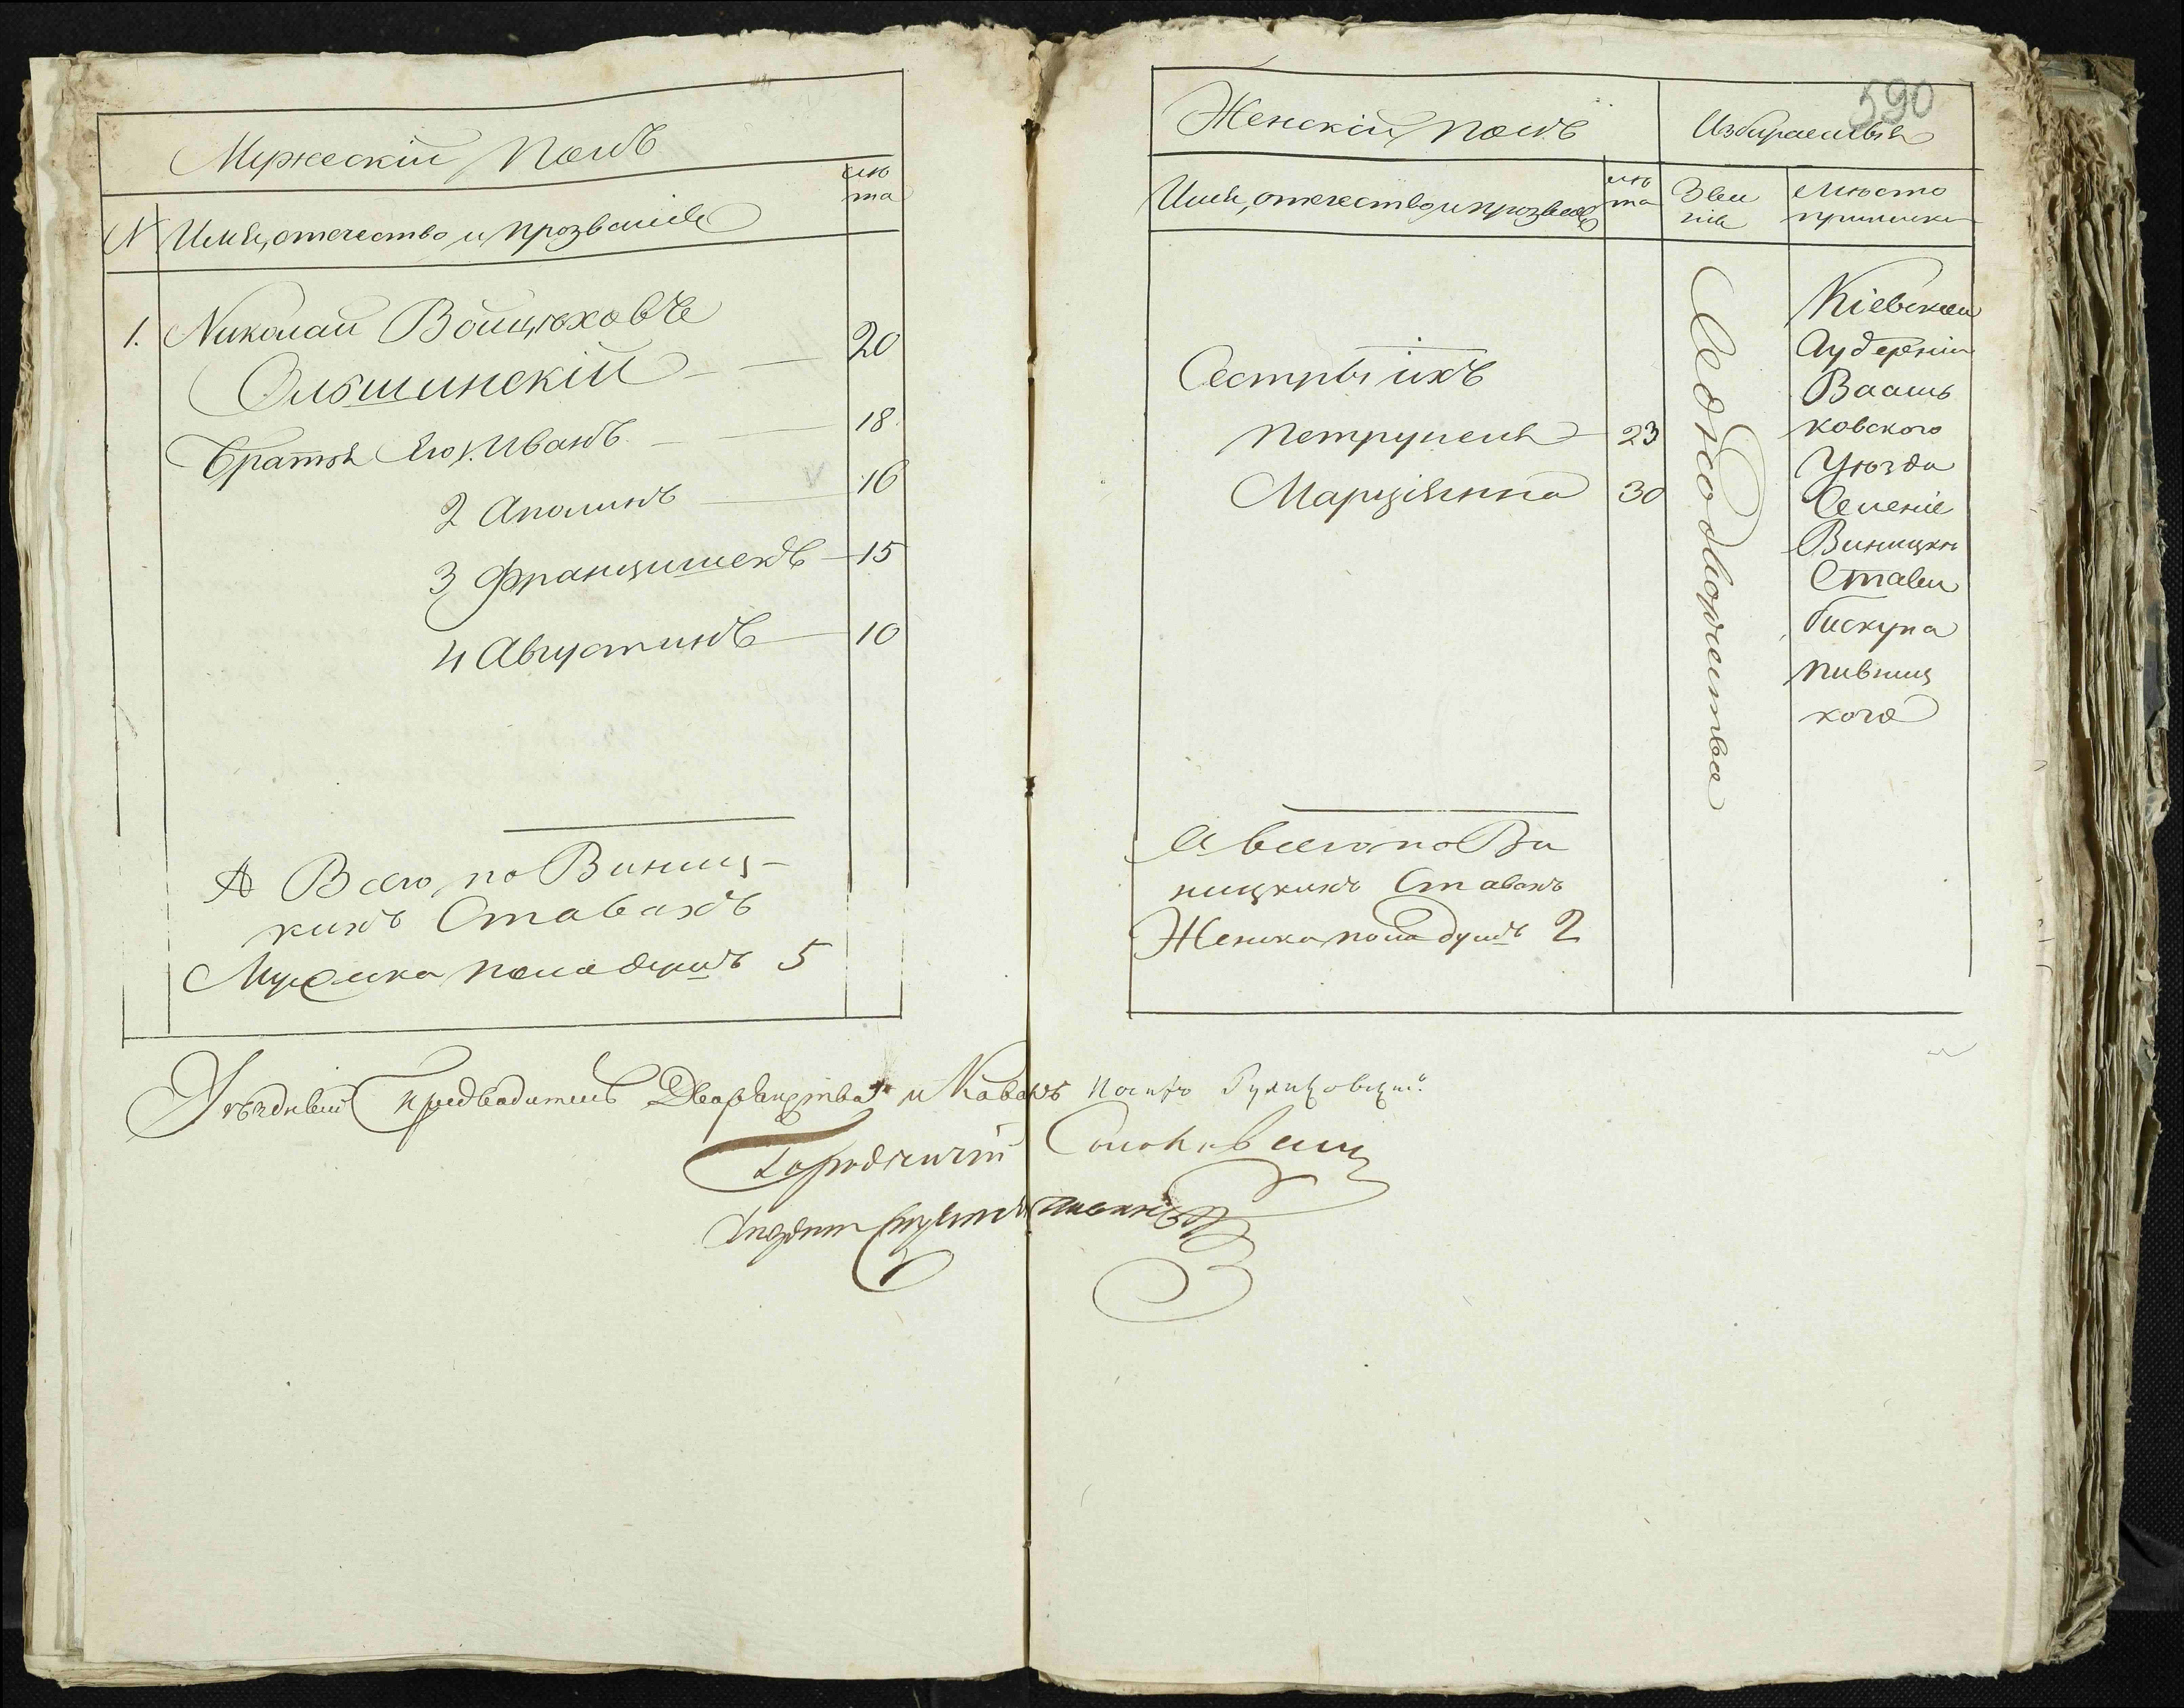 Мужескій Полъ
N Имя, отечество и прозваніе
лѣ
та
1. Николай Войцѣховъ
Ольшинскій 20
Братья Его 1. Иванъ 18
2 Аполинъ 16
3 Францишекъ 15
4 Августинъ 10
А Всего по Виниц-
кихъ Ставахъ
Мужеска пола душъ 5
590
Женскій полъ
Избираемыя
Имя, отечество и прозваніе
лѣ
та
Зва
ніе
Мѣсто
приписки
Сестры ихъ
Петрунеля 23
Марціянна 30
Однодворчества
Кіевской
Губерніи
Василь
ковского
Уѣзда
Селеніе
Виницкія
Стави
бискупа
пивниц
кого
А всего по Ви
ницкихъ Ставахъ
Женска пола душъ 2
Уѣздный Предводитель Дворянства и Кавалеръ
Городничій